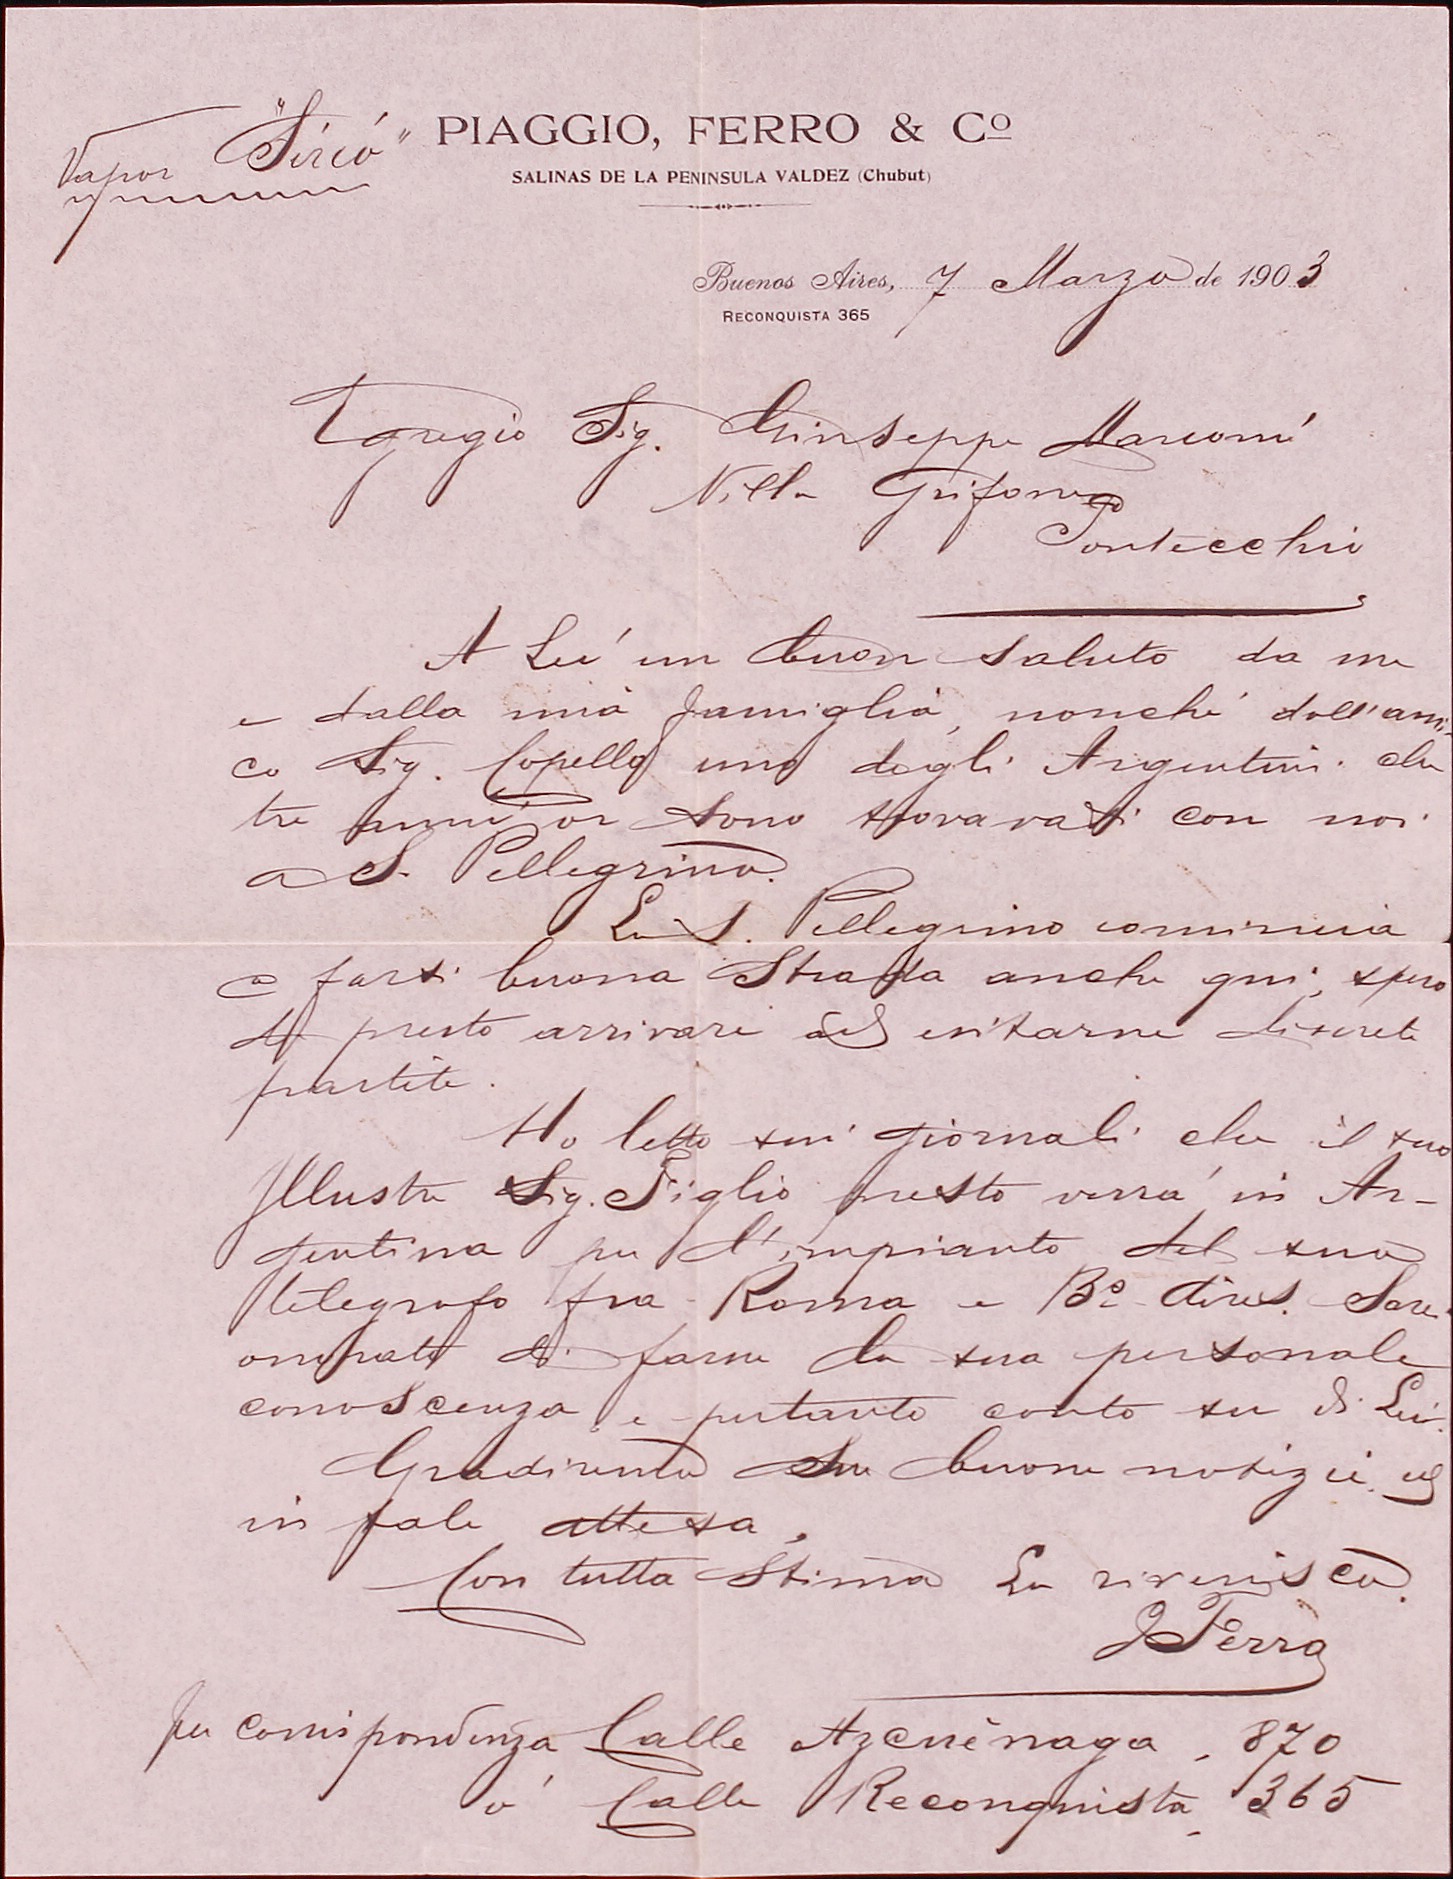 Vapor "Sirio"
PIAGGIO, FERRO & Cº
SALINAS DE LA PENINSULA VALDEZ (Chubut)
Buenos Aires, 7 Marzo de 1903
RECONQUISTA 365
Egregio Sig. Giuseppe Marconi
Villa Grifone
Pontecchio
A Lei un buon saluto da me
e dalla mia famiglia, nonché dall'ami-
co Sig. Copello uno degli Argentini che
tre anni or sono trovavasi con noi
a S. Pellegrino.
La S. Pellegrino comincia
a farsi buona strada anche qui, spero
di presto arrivare ad esitarne discrete
partite.
Ho letto sui giornali che il suo
Illustre Sig. Figlio presto verrà in Ar-
gentina per l'impianto del suo
telegrafo fra Roma e Bs. Aires. Sarei
onorato di farne la sua personale
conoscenza, e pertanto conto su di Lei.
Gradirendo sue buone notizie ed
in tale attesa,
Con tutta stima La riverisco.
J Ferro
per corrispondenza Calle Azcuénaga, 870
ó Calle Reconquista, 365